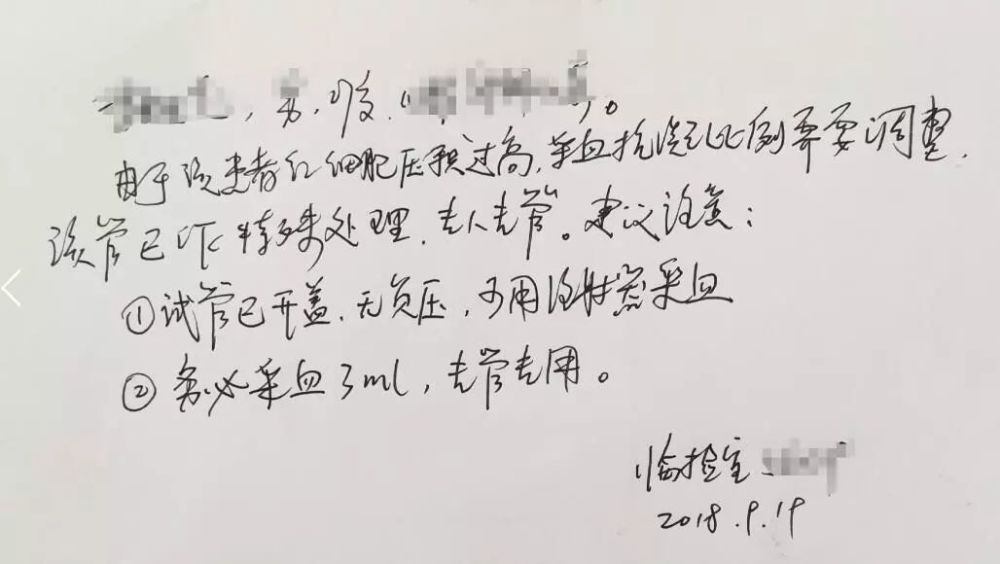 ，男，1岁
由于该患者红细胞压积过高，采血抗凝比例需要调整，
该管已作特殊处理，专人专管。建议注意：
①试管已开盖、无负压，可用注射器采血
②务必采血3ml，专管专用。
临检室
2018.9.19